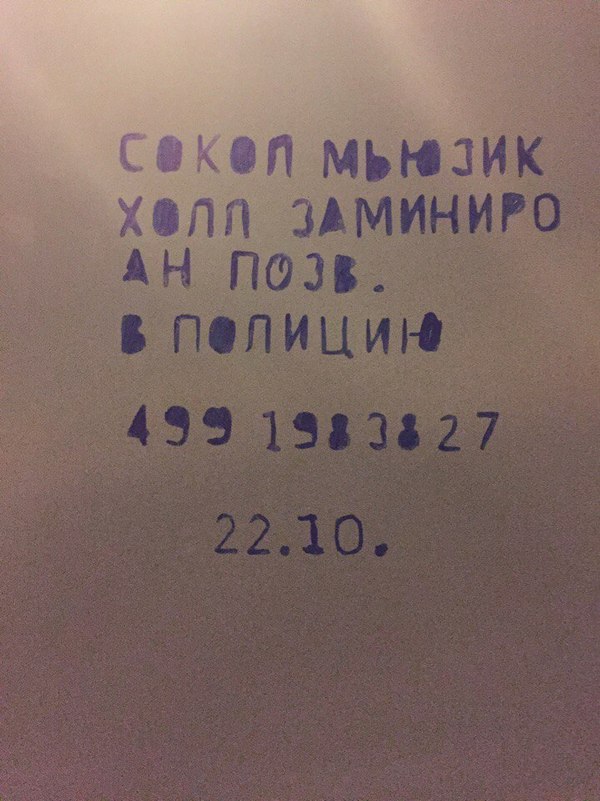 СОКОЛ МЬЮЗИК
ХОЛЛ ЗАМИНИРО
АН ПОЗВ.
В ПОЛИЦИЮ
499 1983827
22.10.